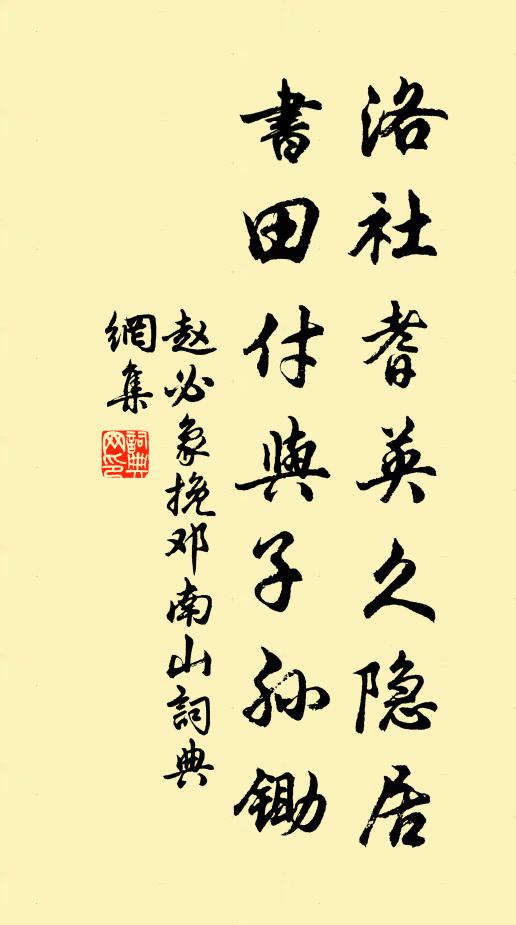 洛社耆英久隐居
書田付與子孙锄
赵必象挽邓南山詞典
網集
詞典
网印